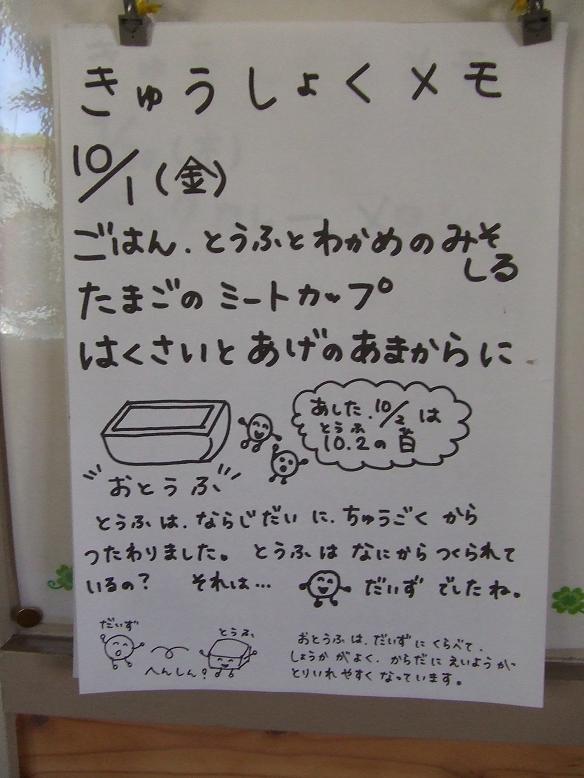 きゅうしょくメモ
10/1(金)
ごはん.とうふとわかめのみそ
しる
たまごのミートカップ
はくさいとあげのあまからに
あした.10/2は
とうふ
10.2の日
おとうふ
とうふは.ならじだいに.ちゅうごくから
つたわりました。とうふはなにからつくられて
いるの? それは… だいずでしたね。
だいず
とうふ
へんしん?
おとうふは.だいずにくらべて.
しょうかがよく.からだにえいようが
とりいれやすくなっています。